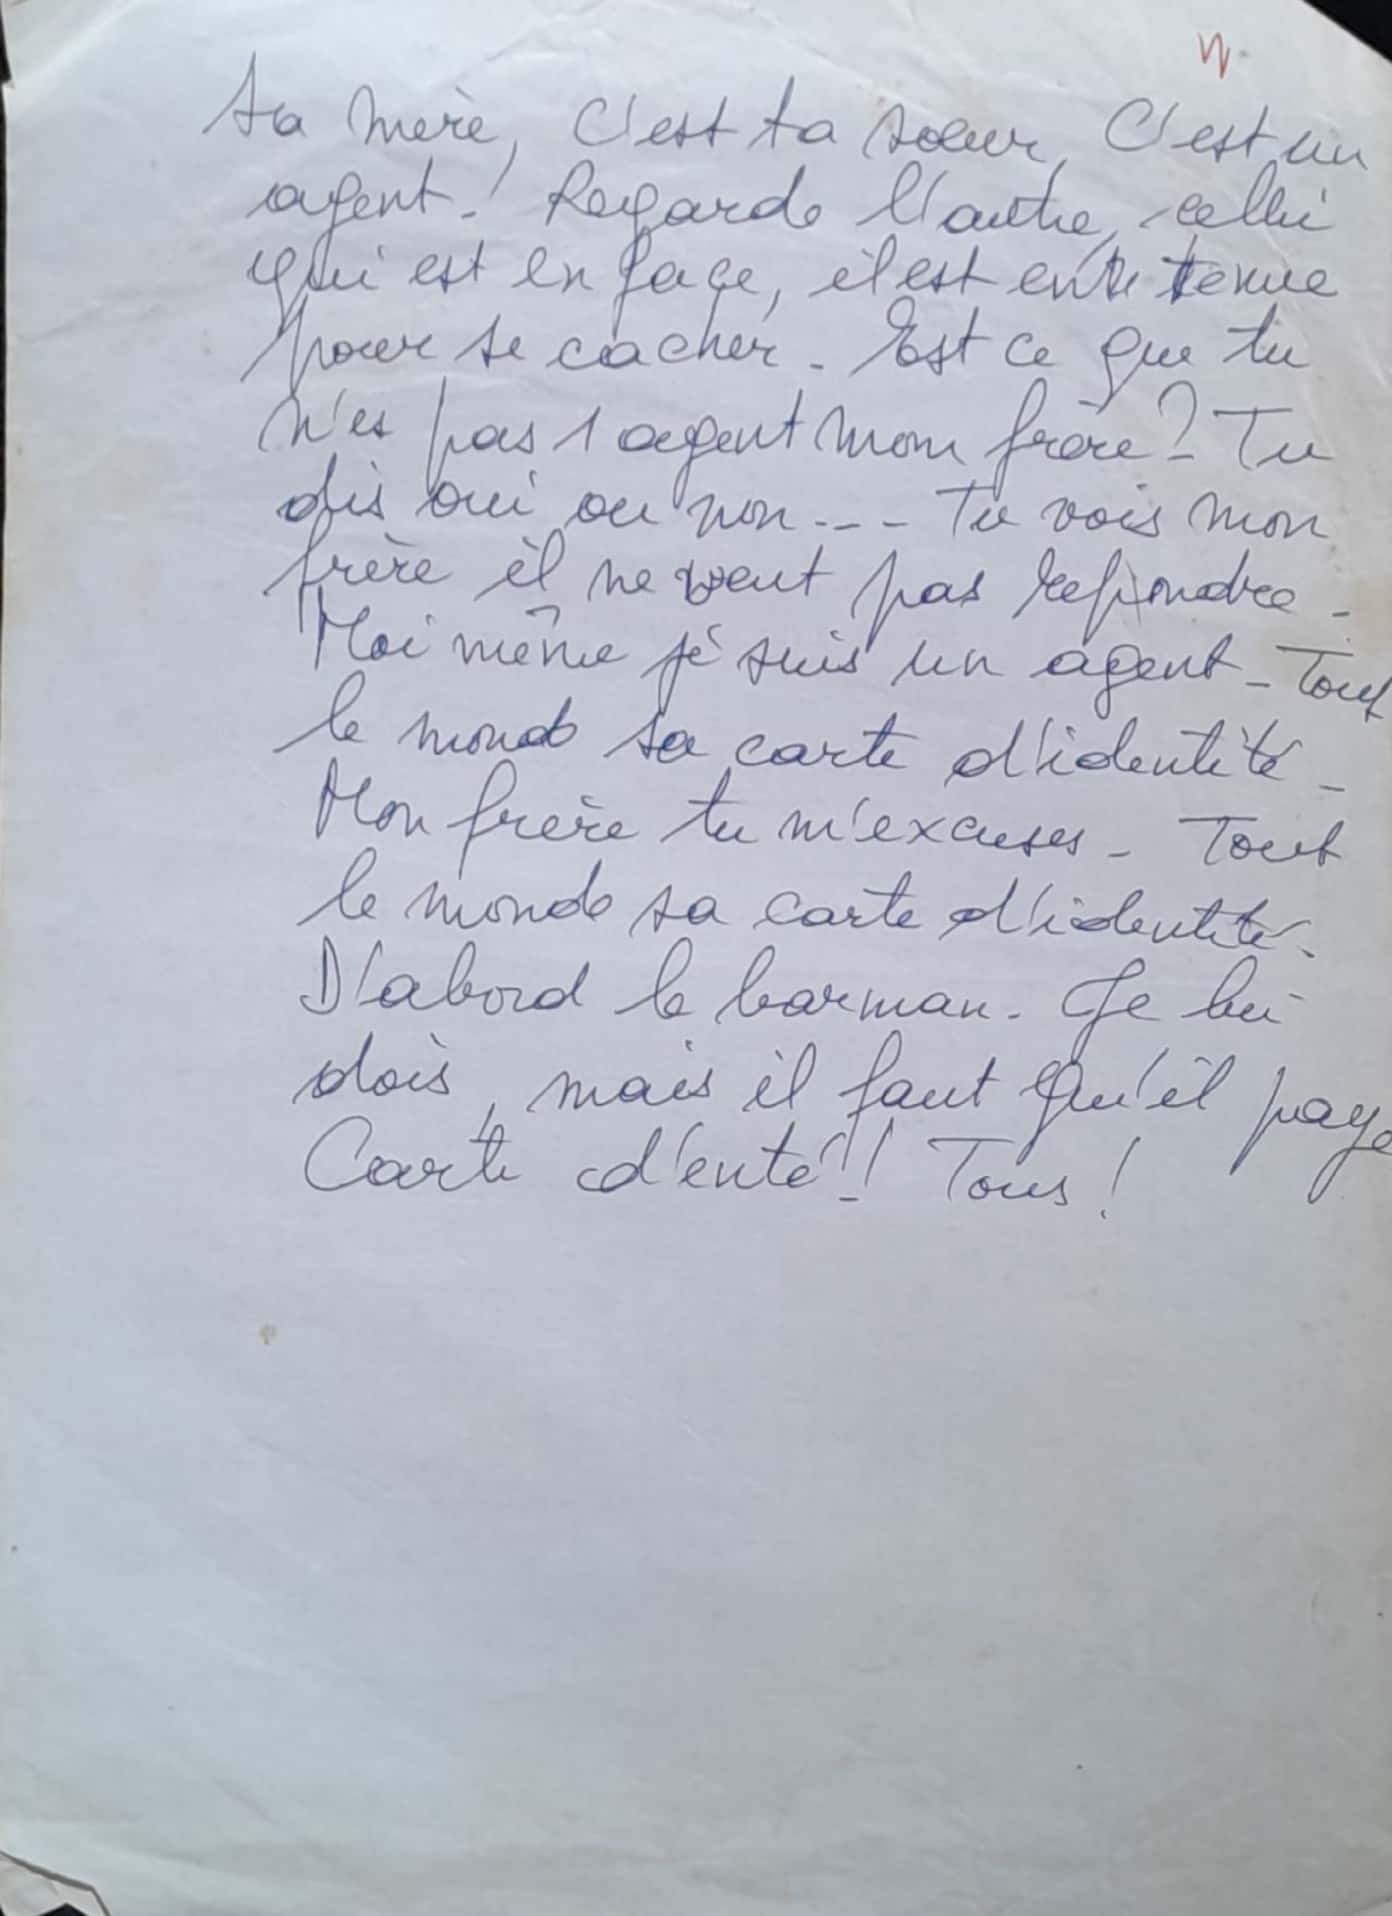 ta mère, C'est ta sœur, C'est un
agent! Regarde l'autre, cellui
qui est en façe, il est en tenue
pour se cacher. Est ce que tu
n'es pas 1 agent mon frère? Tu
dis oui ou non... Tu vois mon
frère il ne veut pas repondre.
Moi même je suis un agent. Tout
le monde sa carte d'identité.
Mon frère tu m'excuses. Tout
le monde sa carte d'identité.
D'abord le barman. Je lui
dois, mais il faut qu'il paye
Carte d'enté!! Tous!